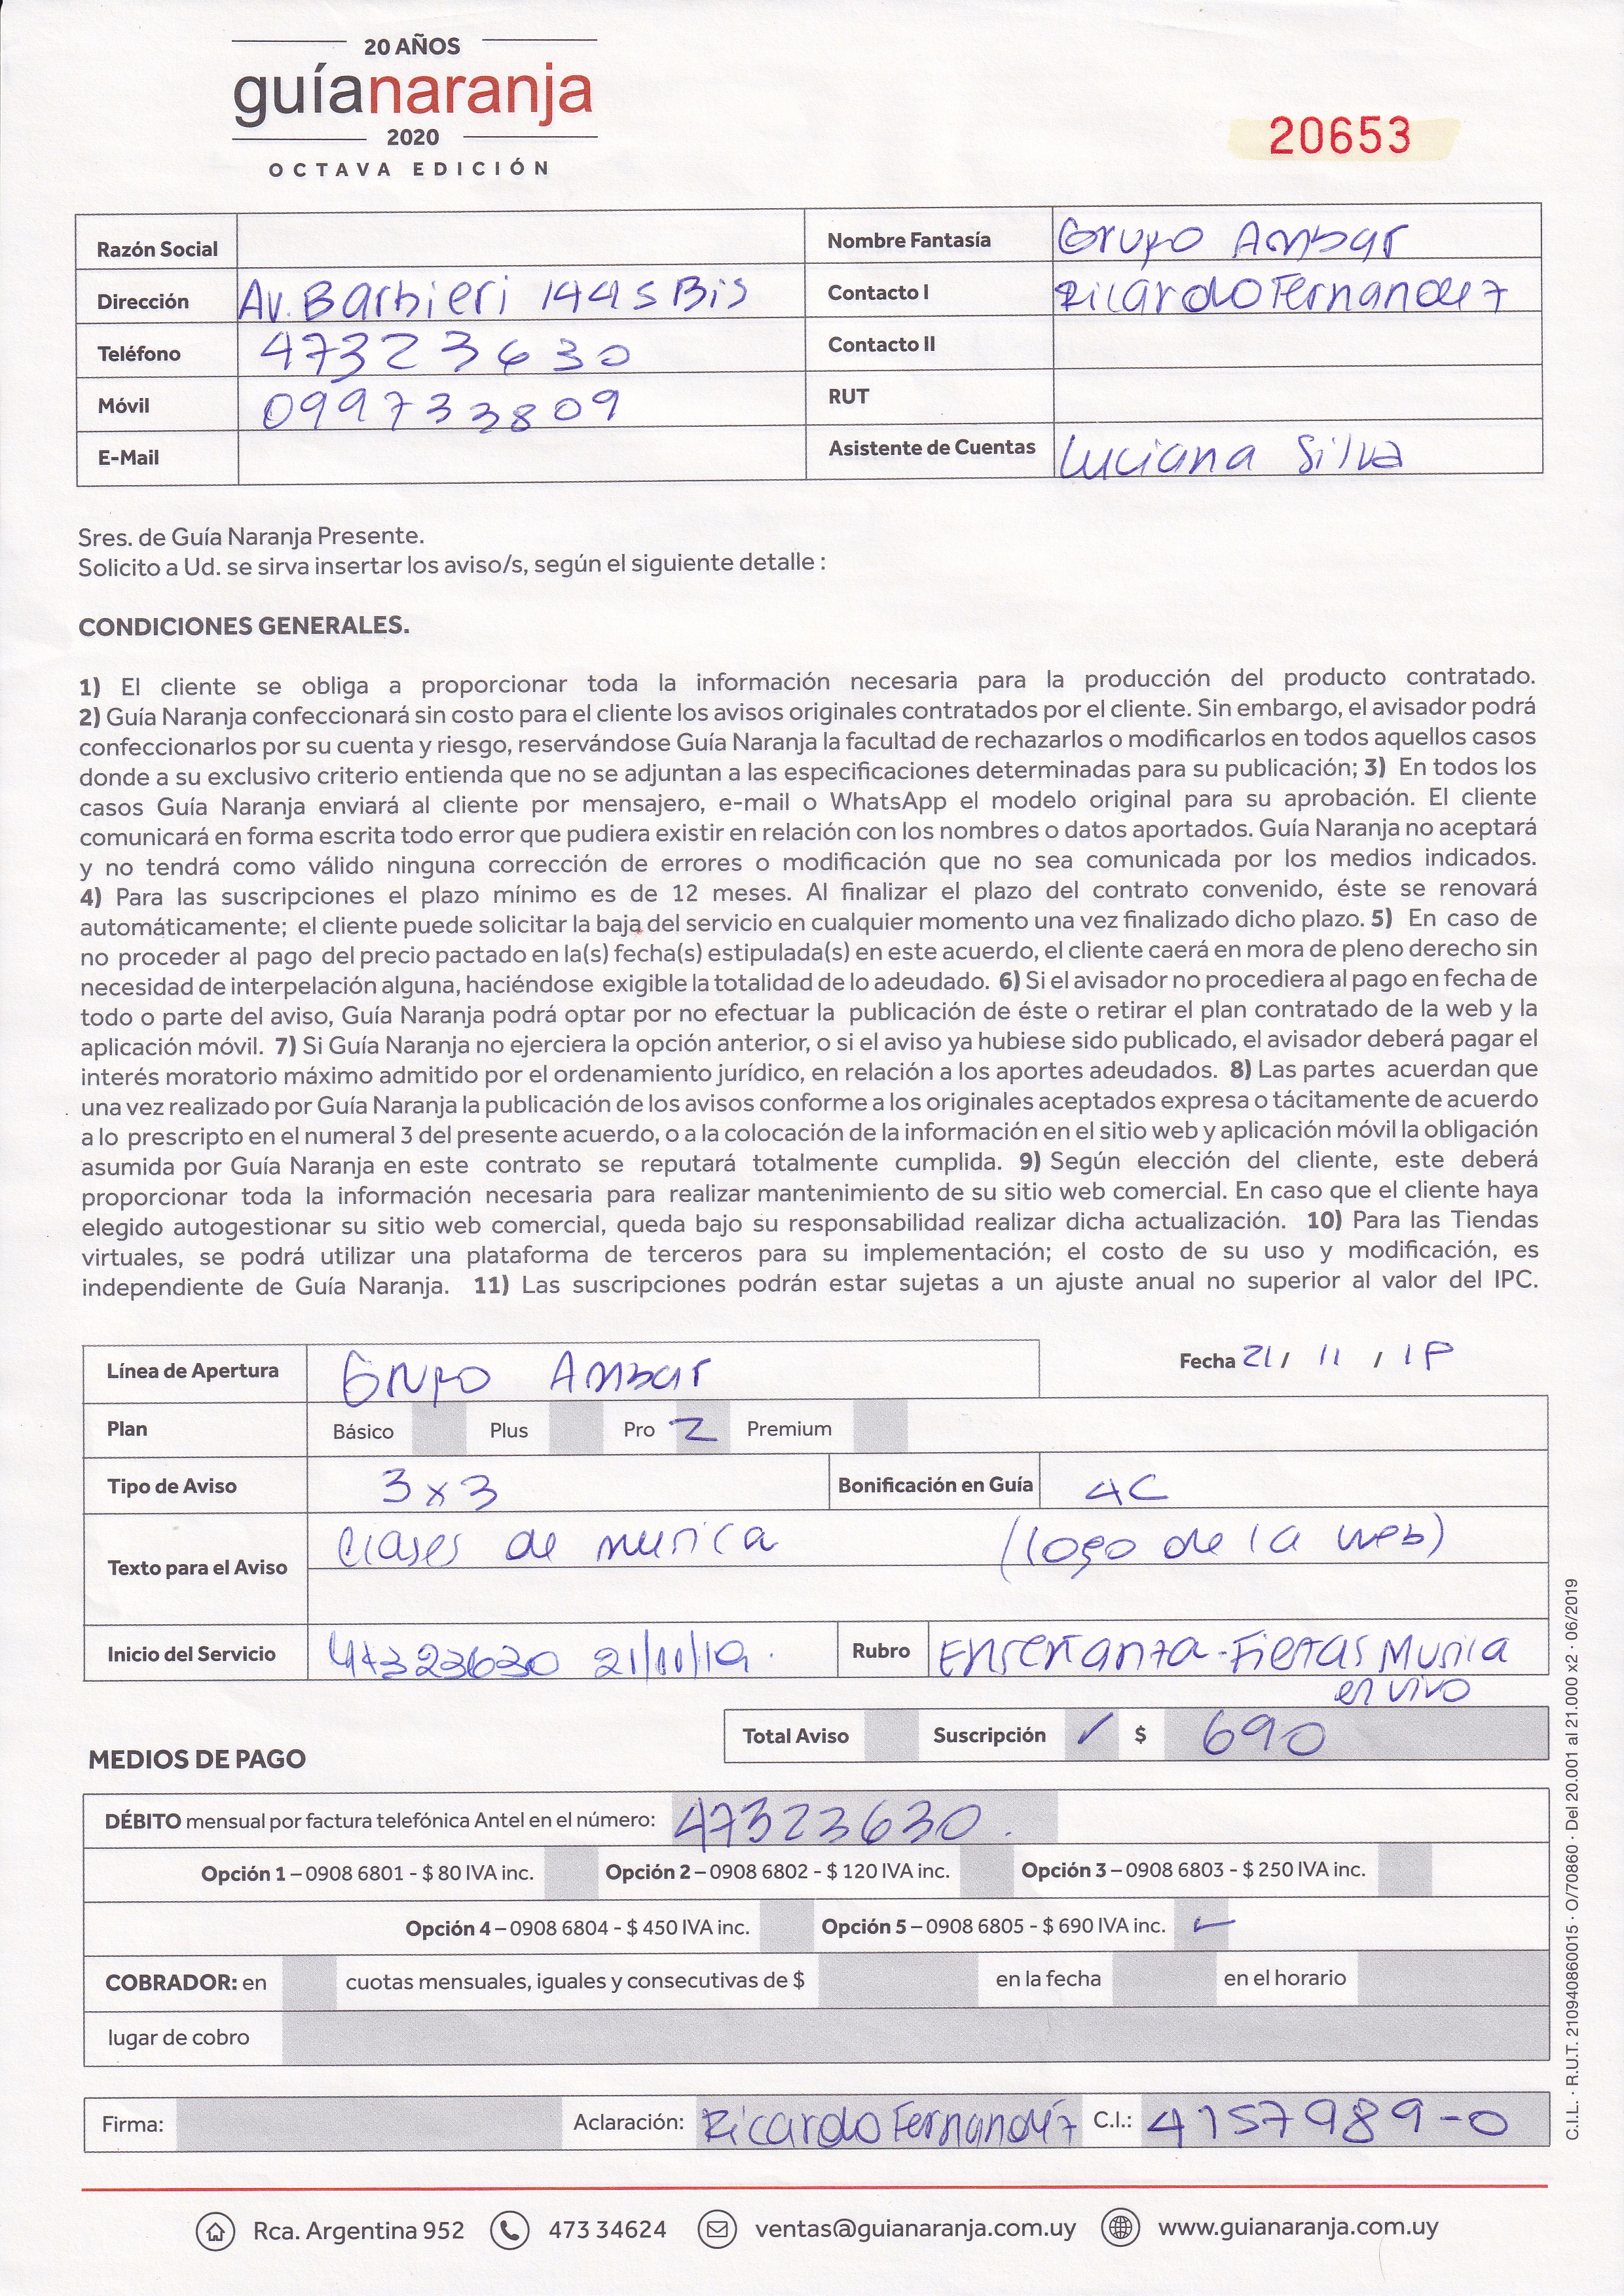 20 AÑOS
guíanaranja
2020
OCTAVA EDICIÓN
20653
Razón Social
Nombre Fantasía Grupo Ambar
Dirección Av. Barbieri 1445 Bis
Contacto I Ricardo Fernandez
Teléfono 47323630
Contacto II
Móvil 099733809
RUT
E-Mail
Asistente de Cuentas Luciana Silva
Sres. de Guía Naranja Presente.
Solicito a Ud. se sirva insertar los aviso/s, según el siguiente detalle :
CONDICIONES GENERALES.
1) El cliente se obliga a proporcionar toda la información necesaria para la producción del producto contratado.
2) Guía Naranja confeccionará sin costo para el cliente los avisos originales contratados por el cliente. Sin embargo, el avisador podrá
confeccionarlos por su cuenta y riesgo, reservándose Guía Naranja la facultad de rechazarlos o modificarlos en todos aquellos casos
donde a su exclusivo criterio entienda que no se adjuntan a las especificaciones determinadas para su publicación; 3) En todos los
casos Guía Naranja enviará al cliente por mensajero, e-mail o WhatsApp el modelo original para su aprobación. El cliente
comunicará en forma escrita todo error que pudiera existir en relación con los nombres o datos aportados. Guía Naranja no aceptará
y no tendrá como válido ninguna corrección de errores o modificación que no sea comunicada por los medios indicados.
4) Para las suscripciones el plazo mínimo es de 12 meses. Al finalizar el plazo del contrato convenido, éste se renovará
automáticamente; el cliente puede solicitar la baja del servicio en cualquier momento una vez finalizado dicho plazo. 5) En caso de
no proceder al pago del precio pactado en la(s) fecha(s) estipulada(s) en este acuerdo, el cliente caerá en mora de pleno derecho sin
necesidad de interpelación alguna, haciéndose exigible la totalidad de lo adeudado. 6) Si el avisador no procediera al pago en fecha de
todo o parte del aviso, Guía Naranja podrá optar por no efectuar la publicación de éste o retirar el plan contratado de la web y la
aplicación móvil. 7) Si Guía Naranja no ejerciera la opción anterior, o si el aviso ya hubiese sido publicado, el avisador deberá pagar el
interés moratorio máximo admitido por el ordenamiento jurídico, en relación a los aportes adeudados. 8) Las partes acuerdan que
una vez realizado por Guía Naranja la publicación de los avisos conforme a los originales aceptados expresa o tácitamente de acuerdo
a lo prescripto en el numeral 3 del presente acuerdo, o a la colocación de la información en el sitio web y aplicación móvil la obligación
asumida por Guía Naranja en este contrato se reputará totalmente cumplida. 9) Según elección del cliente, este deberá
proporcionar toda la información necesaria para realizar mantenimiento de su sitio web comercial. En caso que el cliente haya
elegido autogestionar su sitio web comercial, queda bajo su responsabilidad realizar dicha actualización. 10) Para las Tiendas
virtuales, se podrá utilizar una plataforma de terceros para su implementación; el costo de su uso y modificación, es
independiente de Guía Naranja. 11) Las suscripciones podrán estar sujetas a un ajuste anual no superior al valor del IPC.
Línea de Apertura Grupo Ambar
Fecha 21 / 11 / 19
Plan Básico Plus Pro Premium
Tipo de Aviso 3x3
Bonificación en Guía 4C
Texto para el Aviso Clases de musica (logo de la web)
Inicio del Servicio 47323630 21/11/19.
Rubro Enseñanza - Fiestas Musica
en vivo
Total Aviso Suscripción ✓ $ 690
MEDIOS DE PAGO
DÉBITO mensual por factura telefónica Antel en el número: 47323630.
Opción 1 – 0908 6801 - $ 80 IVA inc. Opción 2 – 0908 6802 - $ 120 IVA inc. Opción 3 – 0908 6803 - $ 250 IVA inc.
Opción 4 – 0908 6804 - $ 450 IVA inc. Opción 5 – 0908 6805 - $ 690 IVA inc. ✓
COBRADOR: en cuotas mensuales, iguales y consecutivas de $ en la fecha en el horario
lugar de cobro
Firma: Aclaración: Ricardo Fernandez C.I.: 4157989-0
Rca. Argentina 952 473 34624 ventas@guianaranja.com.uy www.guianaranja.com.uy
C.I.L. · R.U.T. 210940860015 · O/70860 · Del 20.001 al 21.000 x2 · 06/2019